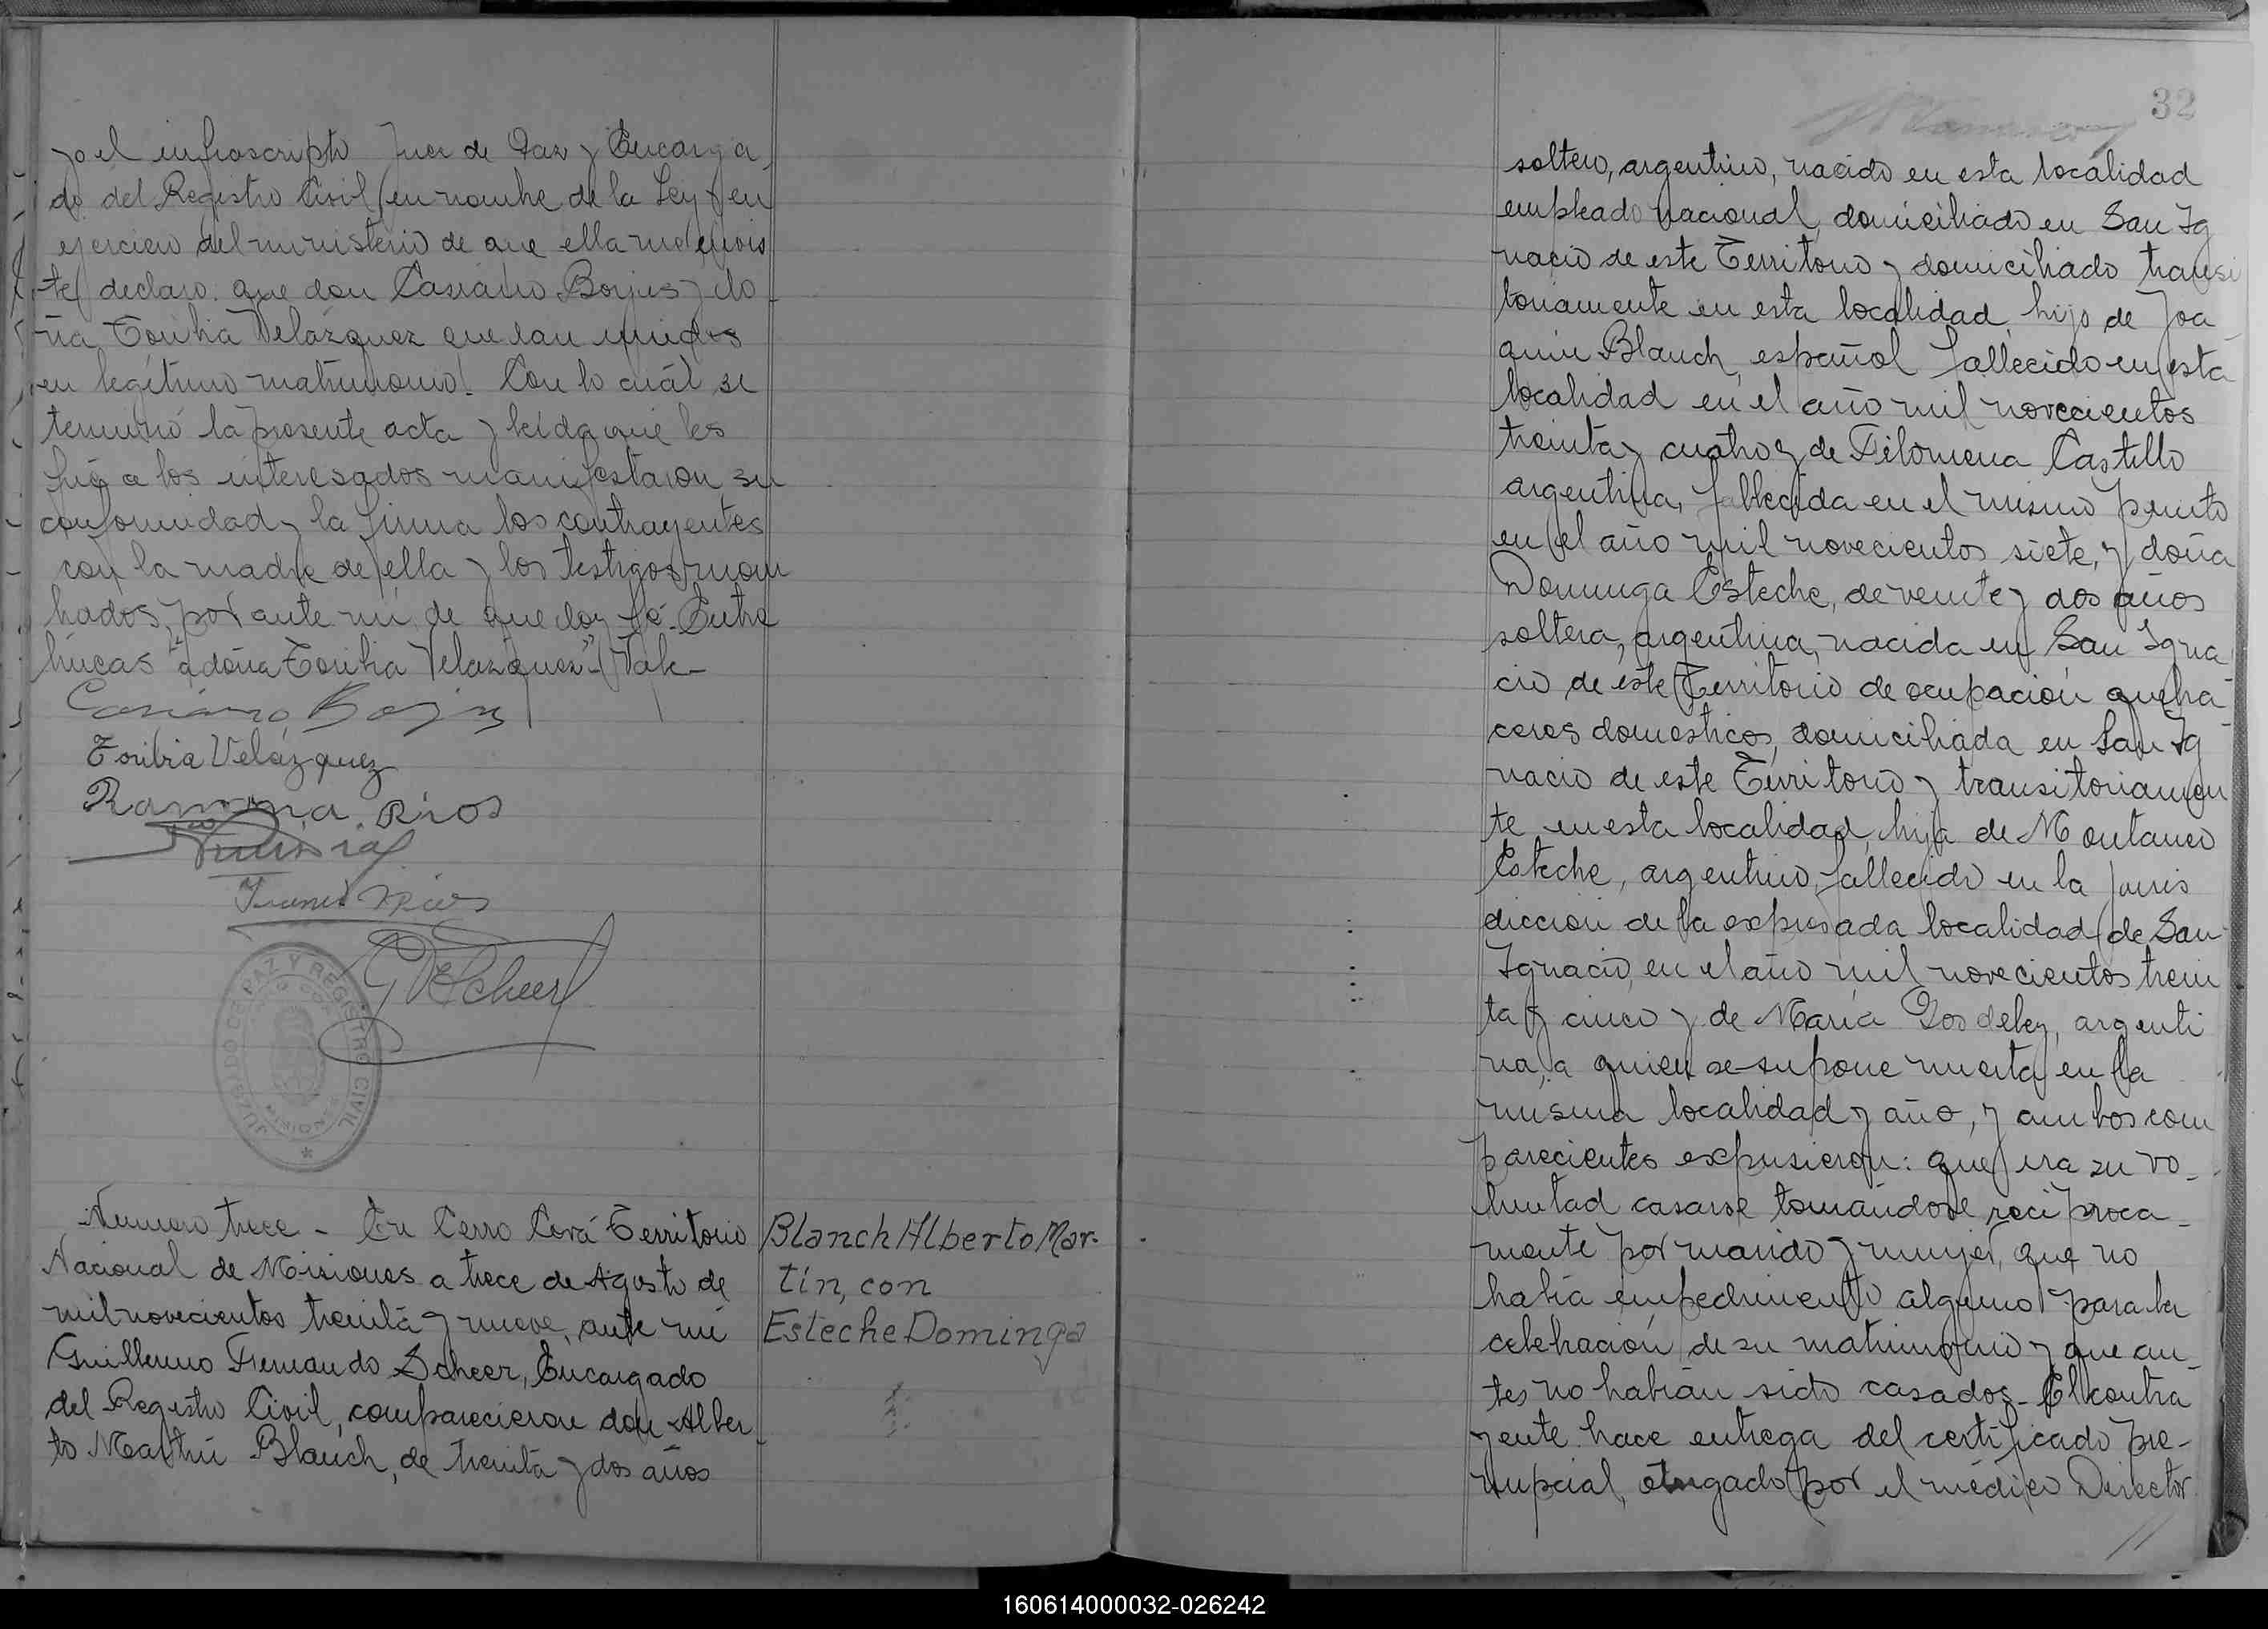 yo el infrascripto Juez de Paz y Encarga
do del Registro Civil en nombre de la Ley y en
ejercicio del ministerio de que ella me envis
te declaro: que don Casiano Borjas y do
ña Toribia Velázquez quedan unidos
en legítimo matrimonio. Con lo cuál se
terminó la presente acta y leída que les
fué a los interesados manifestaron su
conformidad y la firma los contrayentes
con la madre de ella y los testigos nom
brados, por ante mi de que doy fé. Entre
líneas "a doña Toribia Velazquez" Vale
Casiano Borjas
Toribia Velázquez
Ramona Rios
G F Scheer
JUZGADO DE PAZ Y REGISTRO CIVIL
MISIONES
Numero trece - En Cerro Corá Territorio
Nacional de Misiones a trece de Agosto de
mil novecientos treinta y nueve, ante mi
Guillermo Fernando Scheer, Encargado
del Registro Civil, comparecieron don Alber
to Martín Blanch, de treinta y dos años
Blanch Alberto Mar-
tín, con
Esteche Dominga
32
soltero, argentino, nacido en esta localidad
empleado nacional, domiciliado en San Ig
nacio de este Territorio y domiciliado transi
toriamente en esta localidad, hijo de Joa
quin Blanch, español fallecido en esta
localidad en el año mil novecientos
treinta y cuatro y de Filomena Castillo
argentina, fallecida en el mismo punto
en el año mil novecientos siete, y doña
Dominga Esteche, de veinte y dos años
soltera, argentina, nacida en San Igna
cio de este Territorio de ocupación queha
ceres domesticos, domiciliada en San Ig
nacio de este Territorio y transitoriamen
te en esta localidad, hija de Montanco
Esteche, argentino, fallecido en la juris
dicción de la expresada localidad de San
Ignacio, en el año mil novecientos trein
ta y cinco y de María Gosdeley, argenti
na, a quien se supone muerta en la
misma localidad y año, y ambos com
parecientes expusieron: que era su vo-
luntad casarse tomándose reciproca-
mente por marido y mujer, que no
había impedimento alguno para la
celebración de su matrimonio y que an-
tes no habían sido casados. El contra
yente hace entrega del certificado pre-
nupcial, otorgado por el médico Director
160614000032-026242